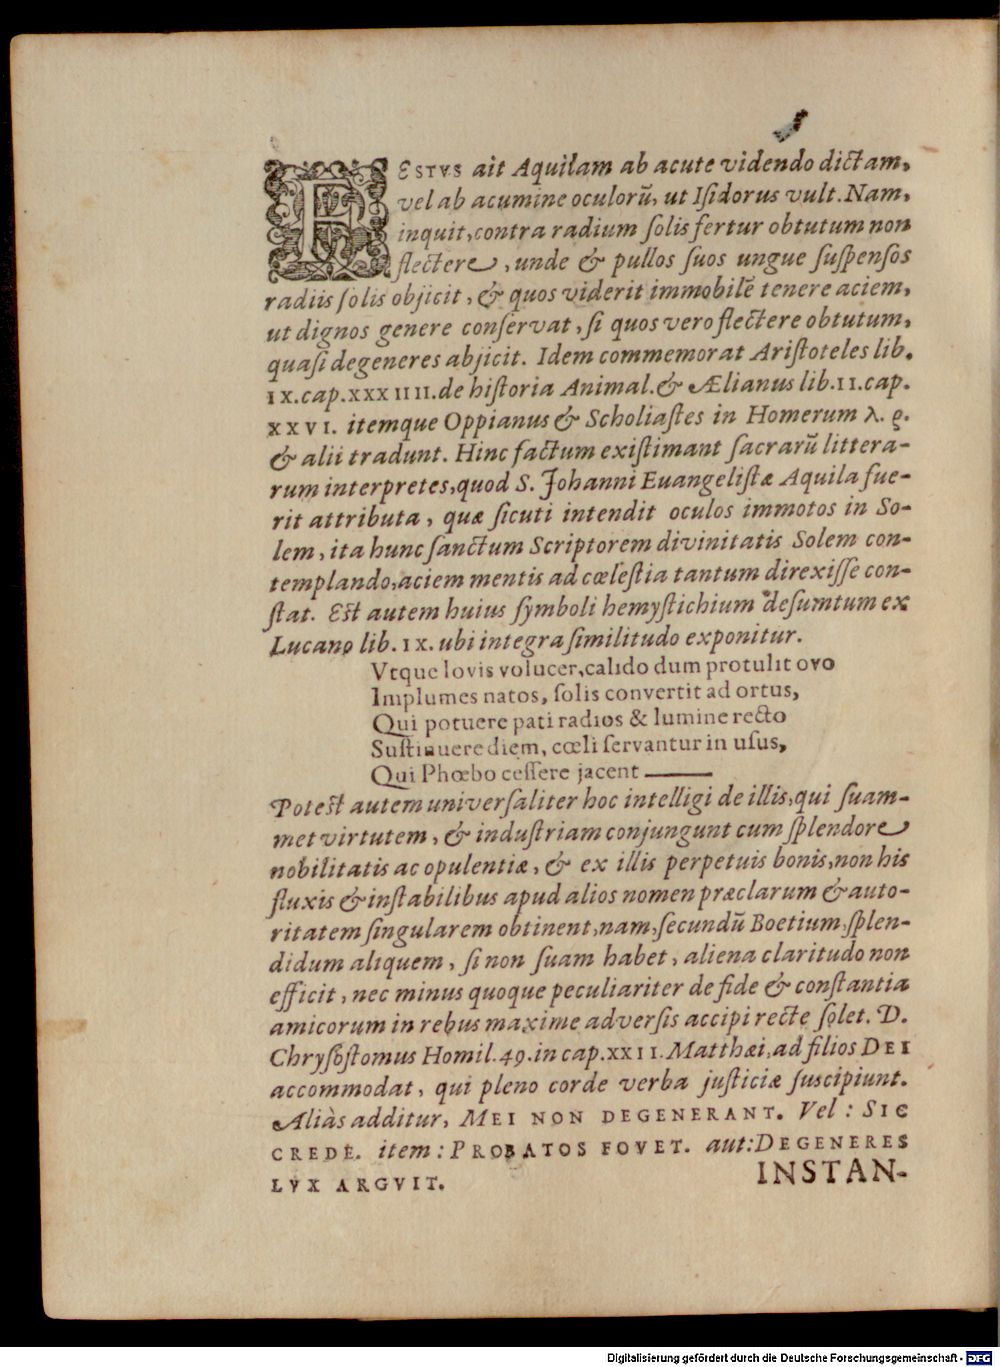 FESTVS ait Aquilam ab acute videndo dictam,
vel ab acumine oculorũ, ut Isidorus vult. Nam,
inquit, contra radium solis fertur obtutum non
flectere, unde & pullos suos ungue suspensos
radiis solis objicit, & quos viderit immobilẽ tenere aciem,
ut dignos genere conservat, si quos vero flectere obtutum,
quasi degeneres abjicit. Idem commemorat Aristoteles lib.
IX. cap. XXXIIII. de historia Animal. & Ælianus lib. II. cap.
XXVI. itemque Oppianus & Scholiastes in Homerum λ. ϱ.
& alii tradunt. Hinc factum existimant sacrarũ littera-
rum interpretes, quod S. Johanni Euangelistæ Aquila fue-
rit attributa, quæ sicuti intendit oculos immotos in So-
lem, ita hunc sanctum Scriptorem divinitatis Solem con-
templando, aciem mentis ad cœlestia tantum direxisse con-
stat. Est autem huius symboli hemystichium desumtum ex
Lucano lib. IX. ubi integra similitudo exponitur.
Vtque Iovis volucer, calido dum protulit ovo
Implumes natos, solis convertit ad ortus,
Qui potuere pati radios & lumine recto
Sustinuere diem, cœli servantur in usus,
Qui Phœbo cessere jacent ———
Potest autem universaliter hoc intelligi de illis, qui suam-
met virtutem, & industriam conjungunt cum splendore
nobilitatis ac opulentiæ, & ex illis perpetuis bonis, non his
fluxis & instabilibus apud alios nomen præclarum & auto-
ritatem singularem obtinent, nam, secundũ Boetium, splen-
didum aliquem, si non suam habet, aliena claritudo non
efficit, nec minus quoque peculiariter de fide & constantia
amicorum in rebus maxime adversis accipi recte solet. D.
Chrysostomus Homil. 49. in cap. XXII. Matthæi, ad filios DEI
accommodat, qui pleno corde verba justiciæ suscipiunt.
Aliàs additur, MEI NON DEGENERANT. Vel: SIC
CREDE. item: PROBATOS FOVET. aut: DEGENERES
LVX ARGVIT.
INSTAN-
Digitalisierung gefördert durch die Deutsche Forschungsgemeinschaft - DFG